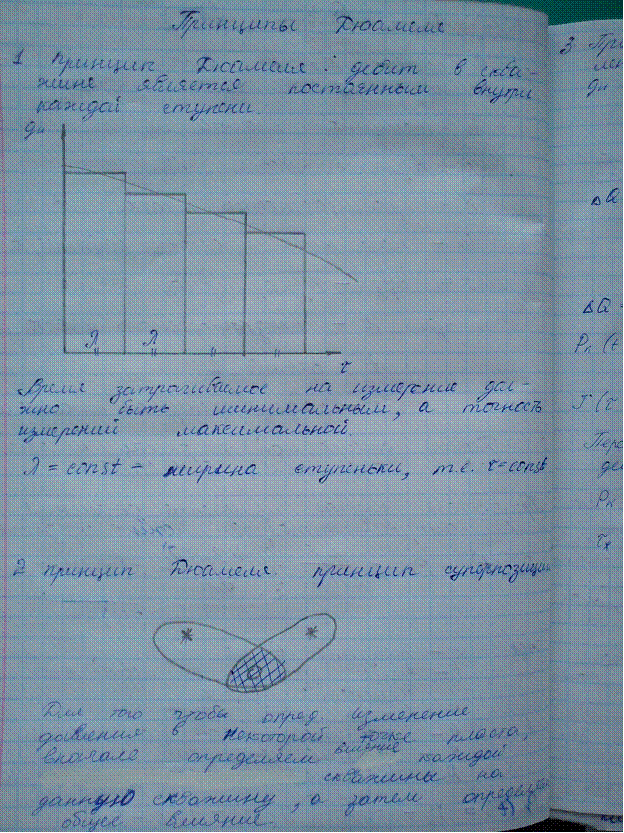 Принципы Дюамеля
1 Принцип Дюамеля: дебит в сква-
жине является постоянным внутри
каждой ступени.
qн
λ λ
τ
Время затрагиваемое на измерение дол-
жно быть минимальным, а точность
измерений максимальной.
λ = const – ширина ступеньки, т.е. τ=const
2 принцип Дюамеля принцип суперпозиции
Для того чтобы опред. изменение
давления в некоторой точке пласта,
вначале определяем влияние каждой
скважины на
данную скважину, а затем
общее влияние.
3
ΔQ
ΔQ
Pк (t